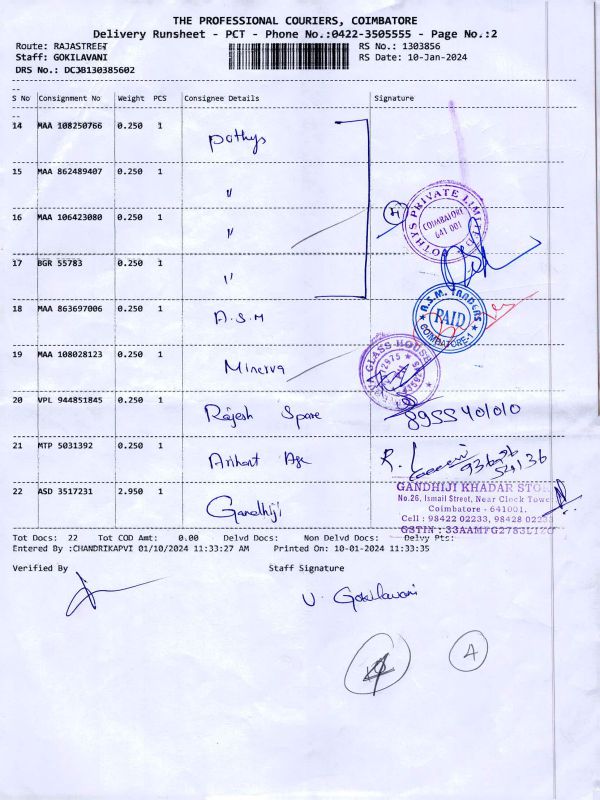 THE PROFESSIONAL COURIERS, COIMBATORE
Delivery Runsheet - PCT - Phone No.:0422-3505555 - Page No.:2
Route: RAJASTREET RS No.: 1303856
Staff: GOKILAVANI RS Date: 10-Jan-2024
DRS No.: DCJB130385602
S No Consignment No Weight PCS Consignee Details Signature
14 MAA 108250766 0.250 1 pothys
15 MAA 862489407 0.250 1 "
16 MAA 106423080 0.250 1 "
POTHYS PRIVATE LIMITED
COIMBATORE
641 001
17 BGR 55783 0.250 1 "
18 MAA 863697006 0.250 1 A.S.M
A.S.M. TRADERS
PAID
COIMBATORE-1
19 MAA 108028123 0.250 1 Minerva
GLASS HOUSE
20 VPL 944851845 0.250 1 Rajesh Spare
21 MTP 5031392 0.250 1 Arihant Age
22 ASD 3517231 2.950 1 Gandhiji
GANDHIJI KHADAR STO
No.26, Ismail Street, Near Clock Tower
Coimbatore - 641001.
Cell : 98422 02233, 98428 02233
GSTIN : 33AAMFG2783L1Z0
Tot Docs: 22 Tot COD Amt: 0.00 Delvd Docs: Non Delvd Docs: Delvy Pts:
Entered By :CHANDRIKAPVI 01/10/2024 11:33:27 AM Printed On: 10-01-2024 11:33:35
Verified By Staff Signature
V. Gokilavani
4